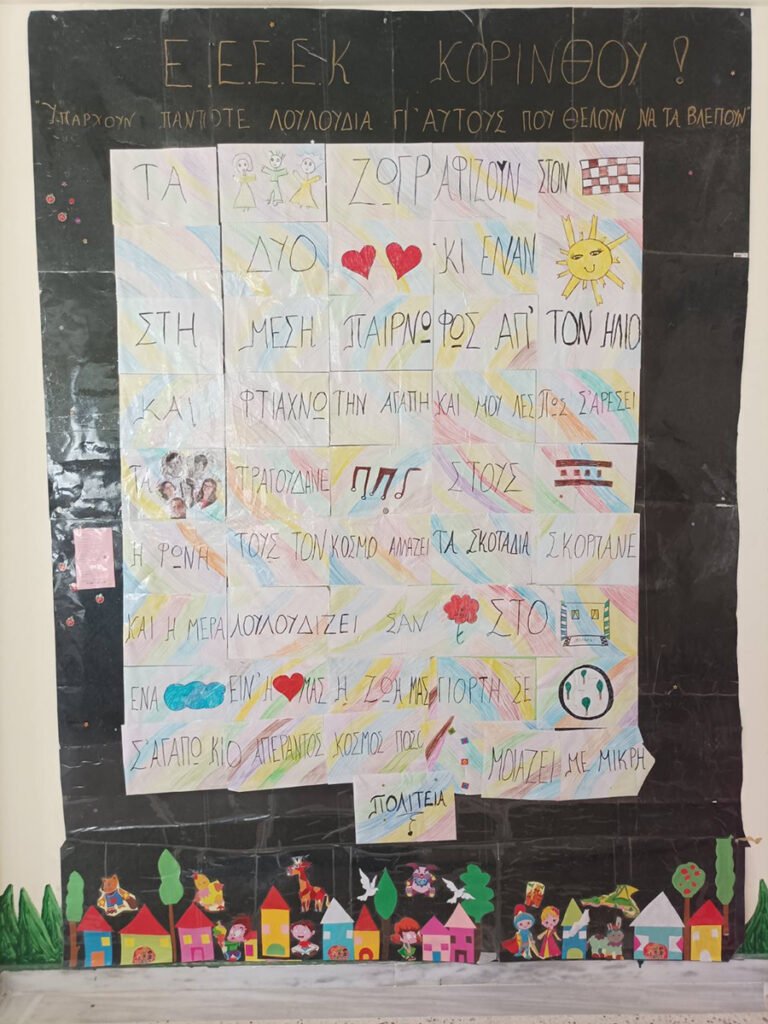 Ε.Ε.Ε.Ε.Κ ΚΟΡΙΝΘΟΥ!
"ΥΠΑΡΧΟΥΝ ΠΑΝΤΟΤΕ ΛΟΥΛΟΥΔΙΑ ΓΙ'ΑΥΤΟΥΣ ΠΟΥ ΘΕΛΟΥΝ ΝΑ ΤΑ ΒΛΕΠΟΥΝ"
ΤΑ ΖΩΓΡΑΦΙΖΟΥΝ ΣΤΟΝ
ΔΥΟ ΚΙ ΕΝΑΝ
ΣΤΗ ΜΕΣΗ ΠΑΙΡΝΩ ΦΩΣ ΑΠ' ΤΟΝ ΗΛΙΟ
ΚΑΙ ΦΤΙΑΧΝΩ ΤΗΝ ΑΓΑΠΗ ΚΑΙ ΜΟΥ ΛΕΣ ΠΩΣ Σ'ΑΡΕΣΕΙ
ΤΑ ΤΡΑΓΟΥΔΑΝΕ ΣΤΟΥΣ
Η ΦΩΝΗ ΤΟΥΣ ΤΟΝ ΚΟΣΜΟ ΑΛΛΑΖΕΙ ΤΑ ΣΚΟΤΑΔΙΑ ΣΚΟΡΠΑΝΕ
ΚΑΙ Η ΜΕΡΑ ΛΟΥΛΟΥΔΙΖΕΙ ΣΑΝ ΣΤΟ
ΕΝΑ ΕΙΝ' Η ΜΑΣ Η ΖΩΗ ΜΑΣ ΓΙΟΡΤΗ ΣΕ
Σ'ΑΓΑΠΩ ΚΙ Ο ΑΠΕΡΑΝΤΟΣ ΚΟΣΜΟΣ ΠΟΣΟ ΜΟΙΑΖΕΙ ΜΕ ΜΙΚΡΗ
ΠΟΛΙΤΕΙΑ